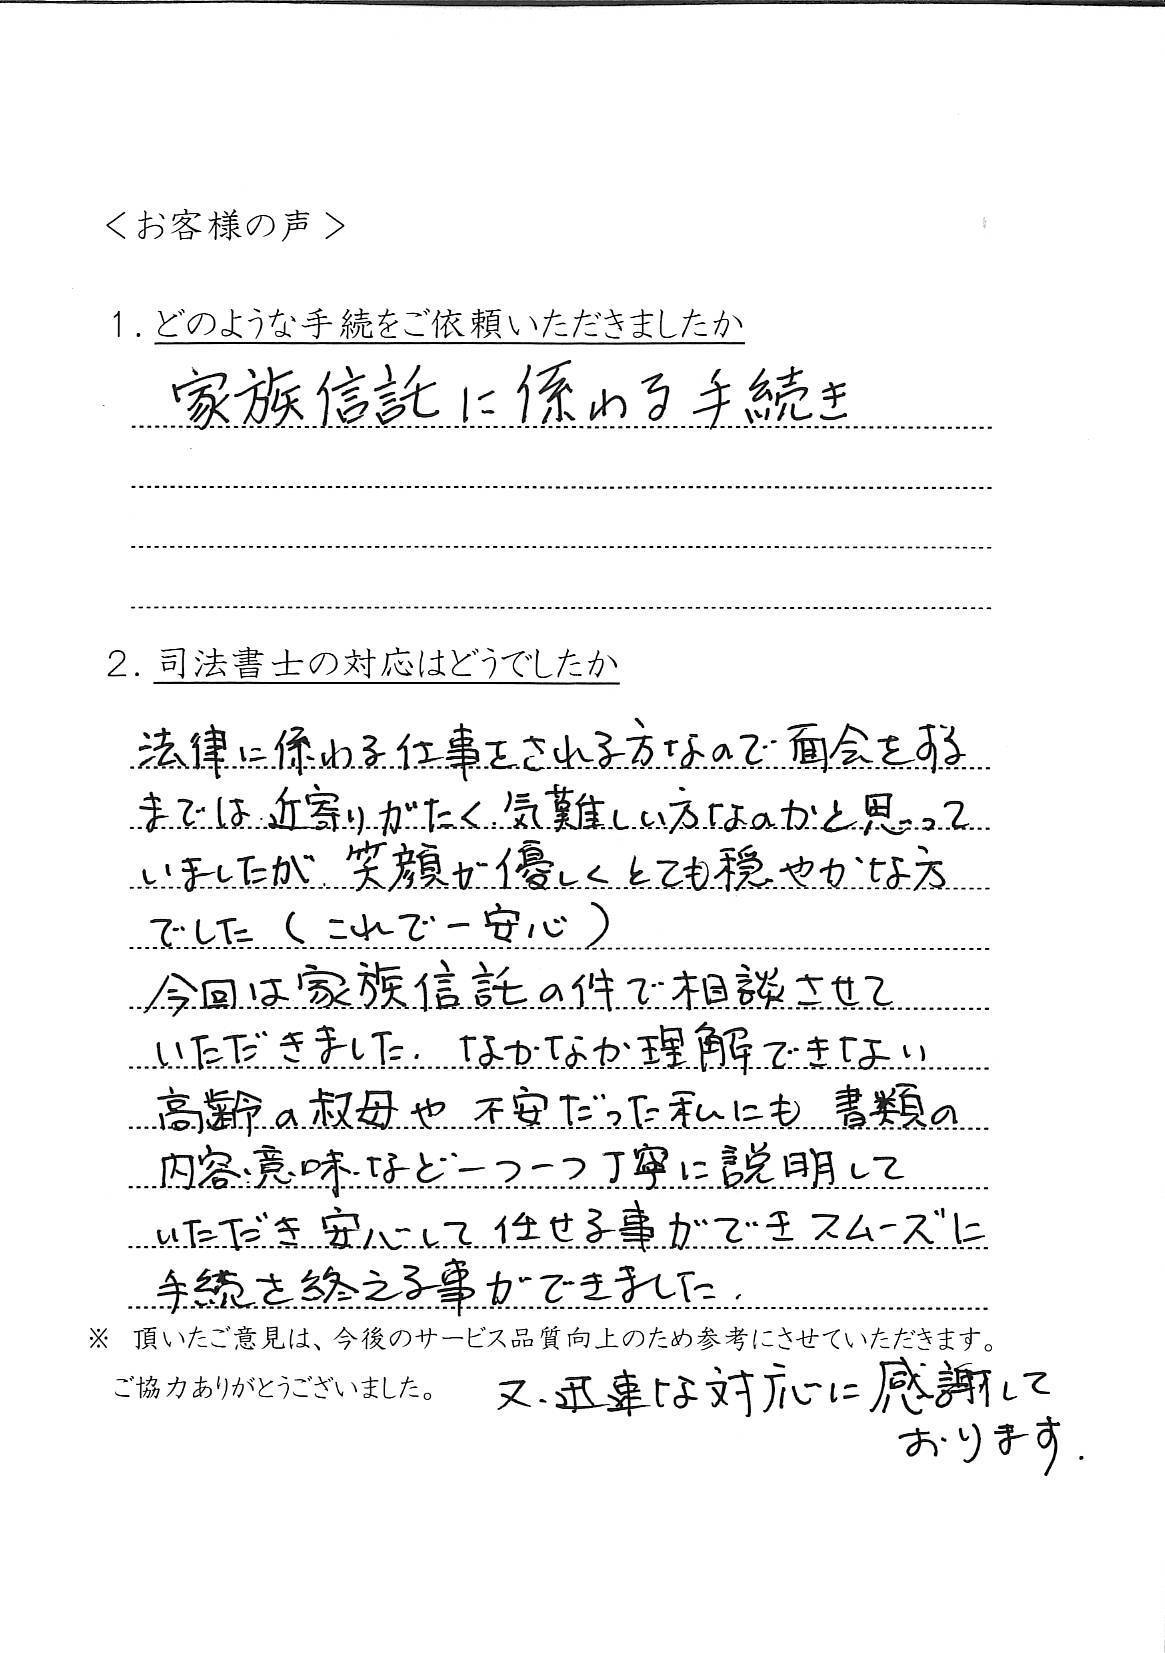 ＜お客様の声＞
1. どのような手続をご依頼いただきましたか
家族信託に係わる手続き
2. 司法書士の対応はどうでしたか
法律に係わる仕事をされる方なので面会をする
までは近寄りがたく、気難しい方なのかと思って
いましたが、笑顔が優しくとても穏やかな方
でした（これで一安心）
今回は家族信託の件で相談させて
いただきました。なかなか理解できない
高齢の叔母や不安だった私にも書類の
内容、意味など一つ一つ丁寧に説明して
いただき安心して任せる事ができスムーズに
手続を終える事ができました。
※ 頂いたご意見は、今後のサービス品質向上のため参考にさせていただきます。
ご協力ありがとうございました。
又、迅速な対応に感謝して
おります.